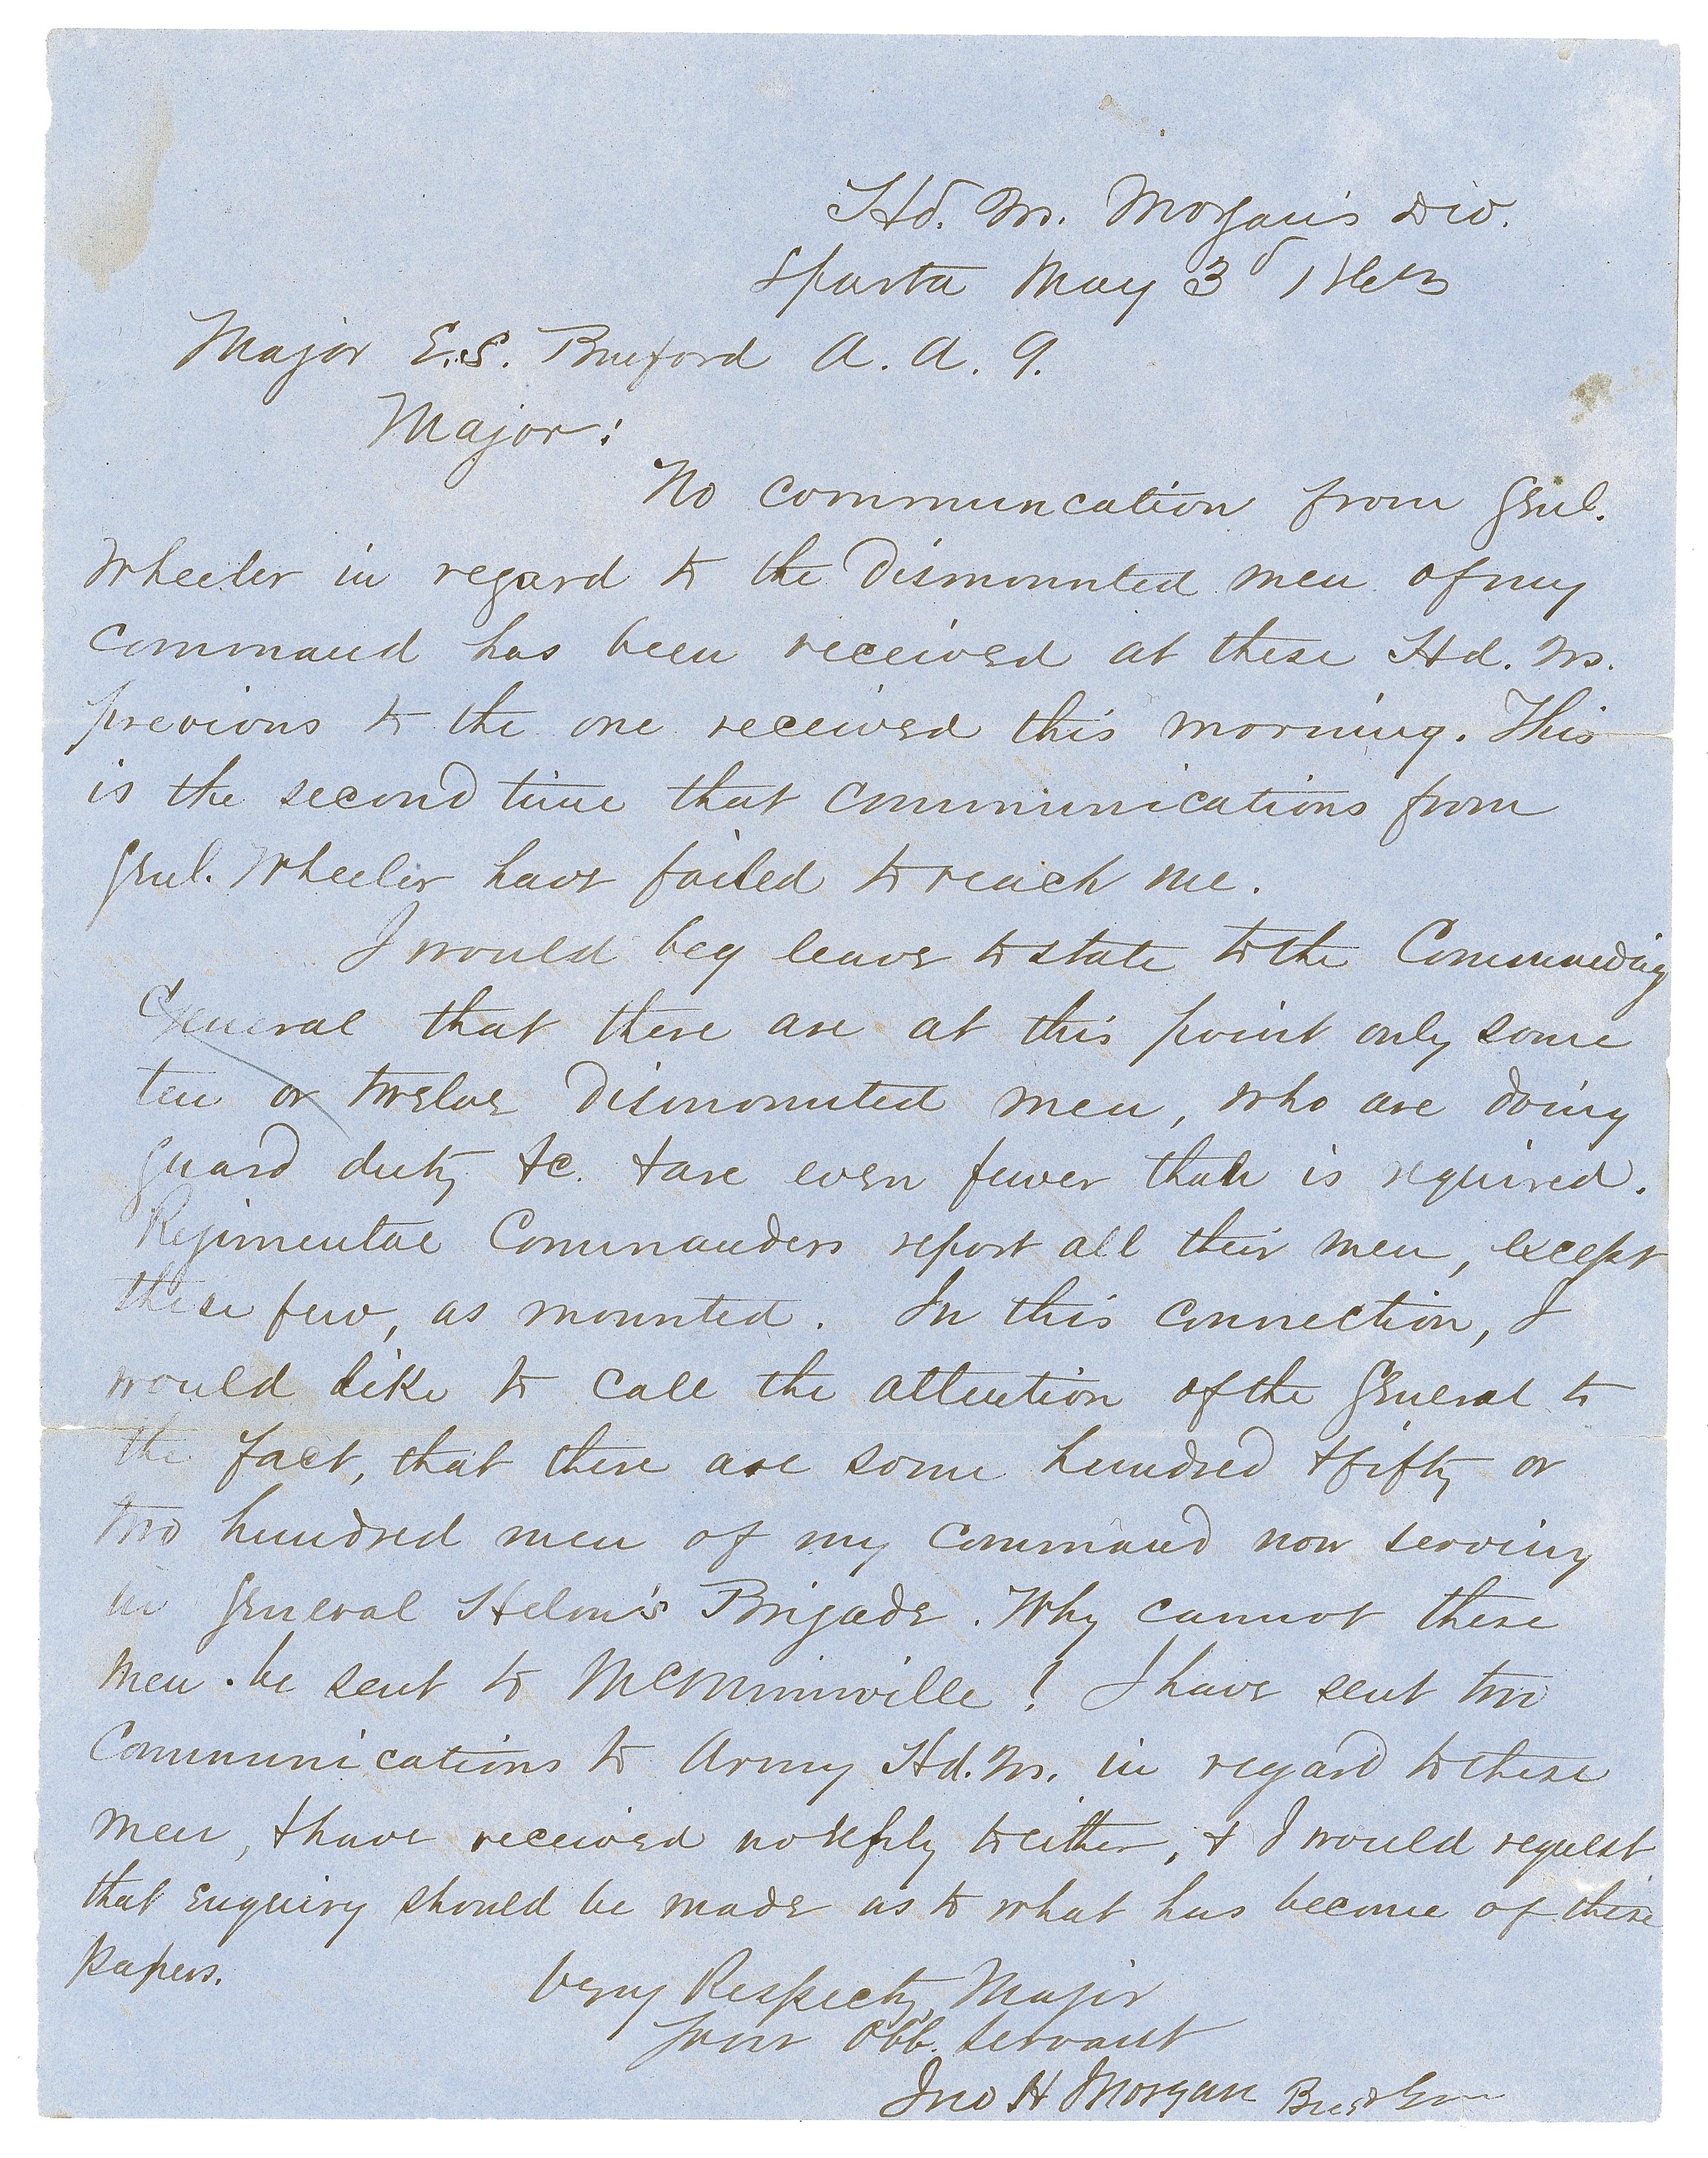 Hd. Qrs. Morgan's Div.
Sparta May 3d 1863
Major E.S. Buford A. A. G.
Major:
No communcation from Genl.
Wheeler in regard to the Dismounted men of my
command has been received at these Hd. Qrs.
previous to the one received this morning. This
is the second time that communications from
Genl. Wheeler have failed to reach me.
I would beg leave to state to the Commanding
General that there are at this point only some
ten or twelve Dismounted men, who are doing
guard duty &c. & are even fewer than is required.
Regimental Commanders report all their men, except
these few, as mounted. In this connection, I
would like to call the attention of the General to
the fact, that there are some hundred & fifty or
two hundred men of my command now serving
in General Helm's Brigade. Why cannot these
men be sent to McMinnville! I have sent two
Communications to Army Hd. Qrs. in regard to these
men, & have received no reply to either, & I would request
that enquiry should be made as to what has become of these
papers.
Very Respecty, Major
Your Obt. Servant
Jno H Morgan Brig Gen